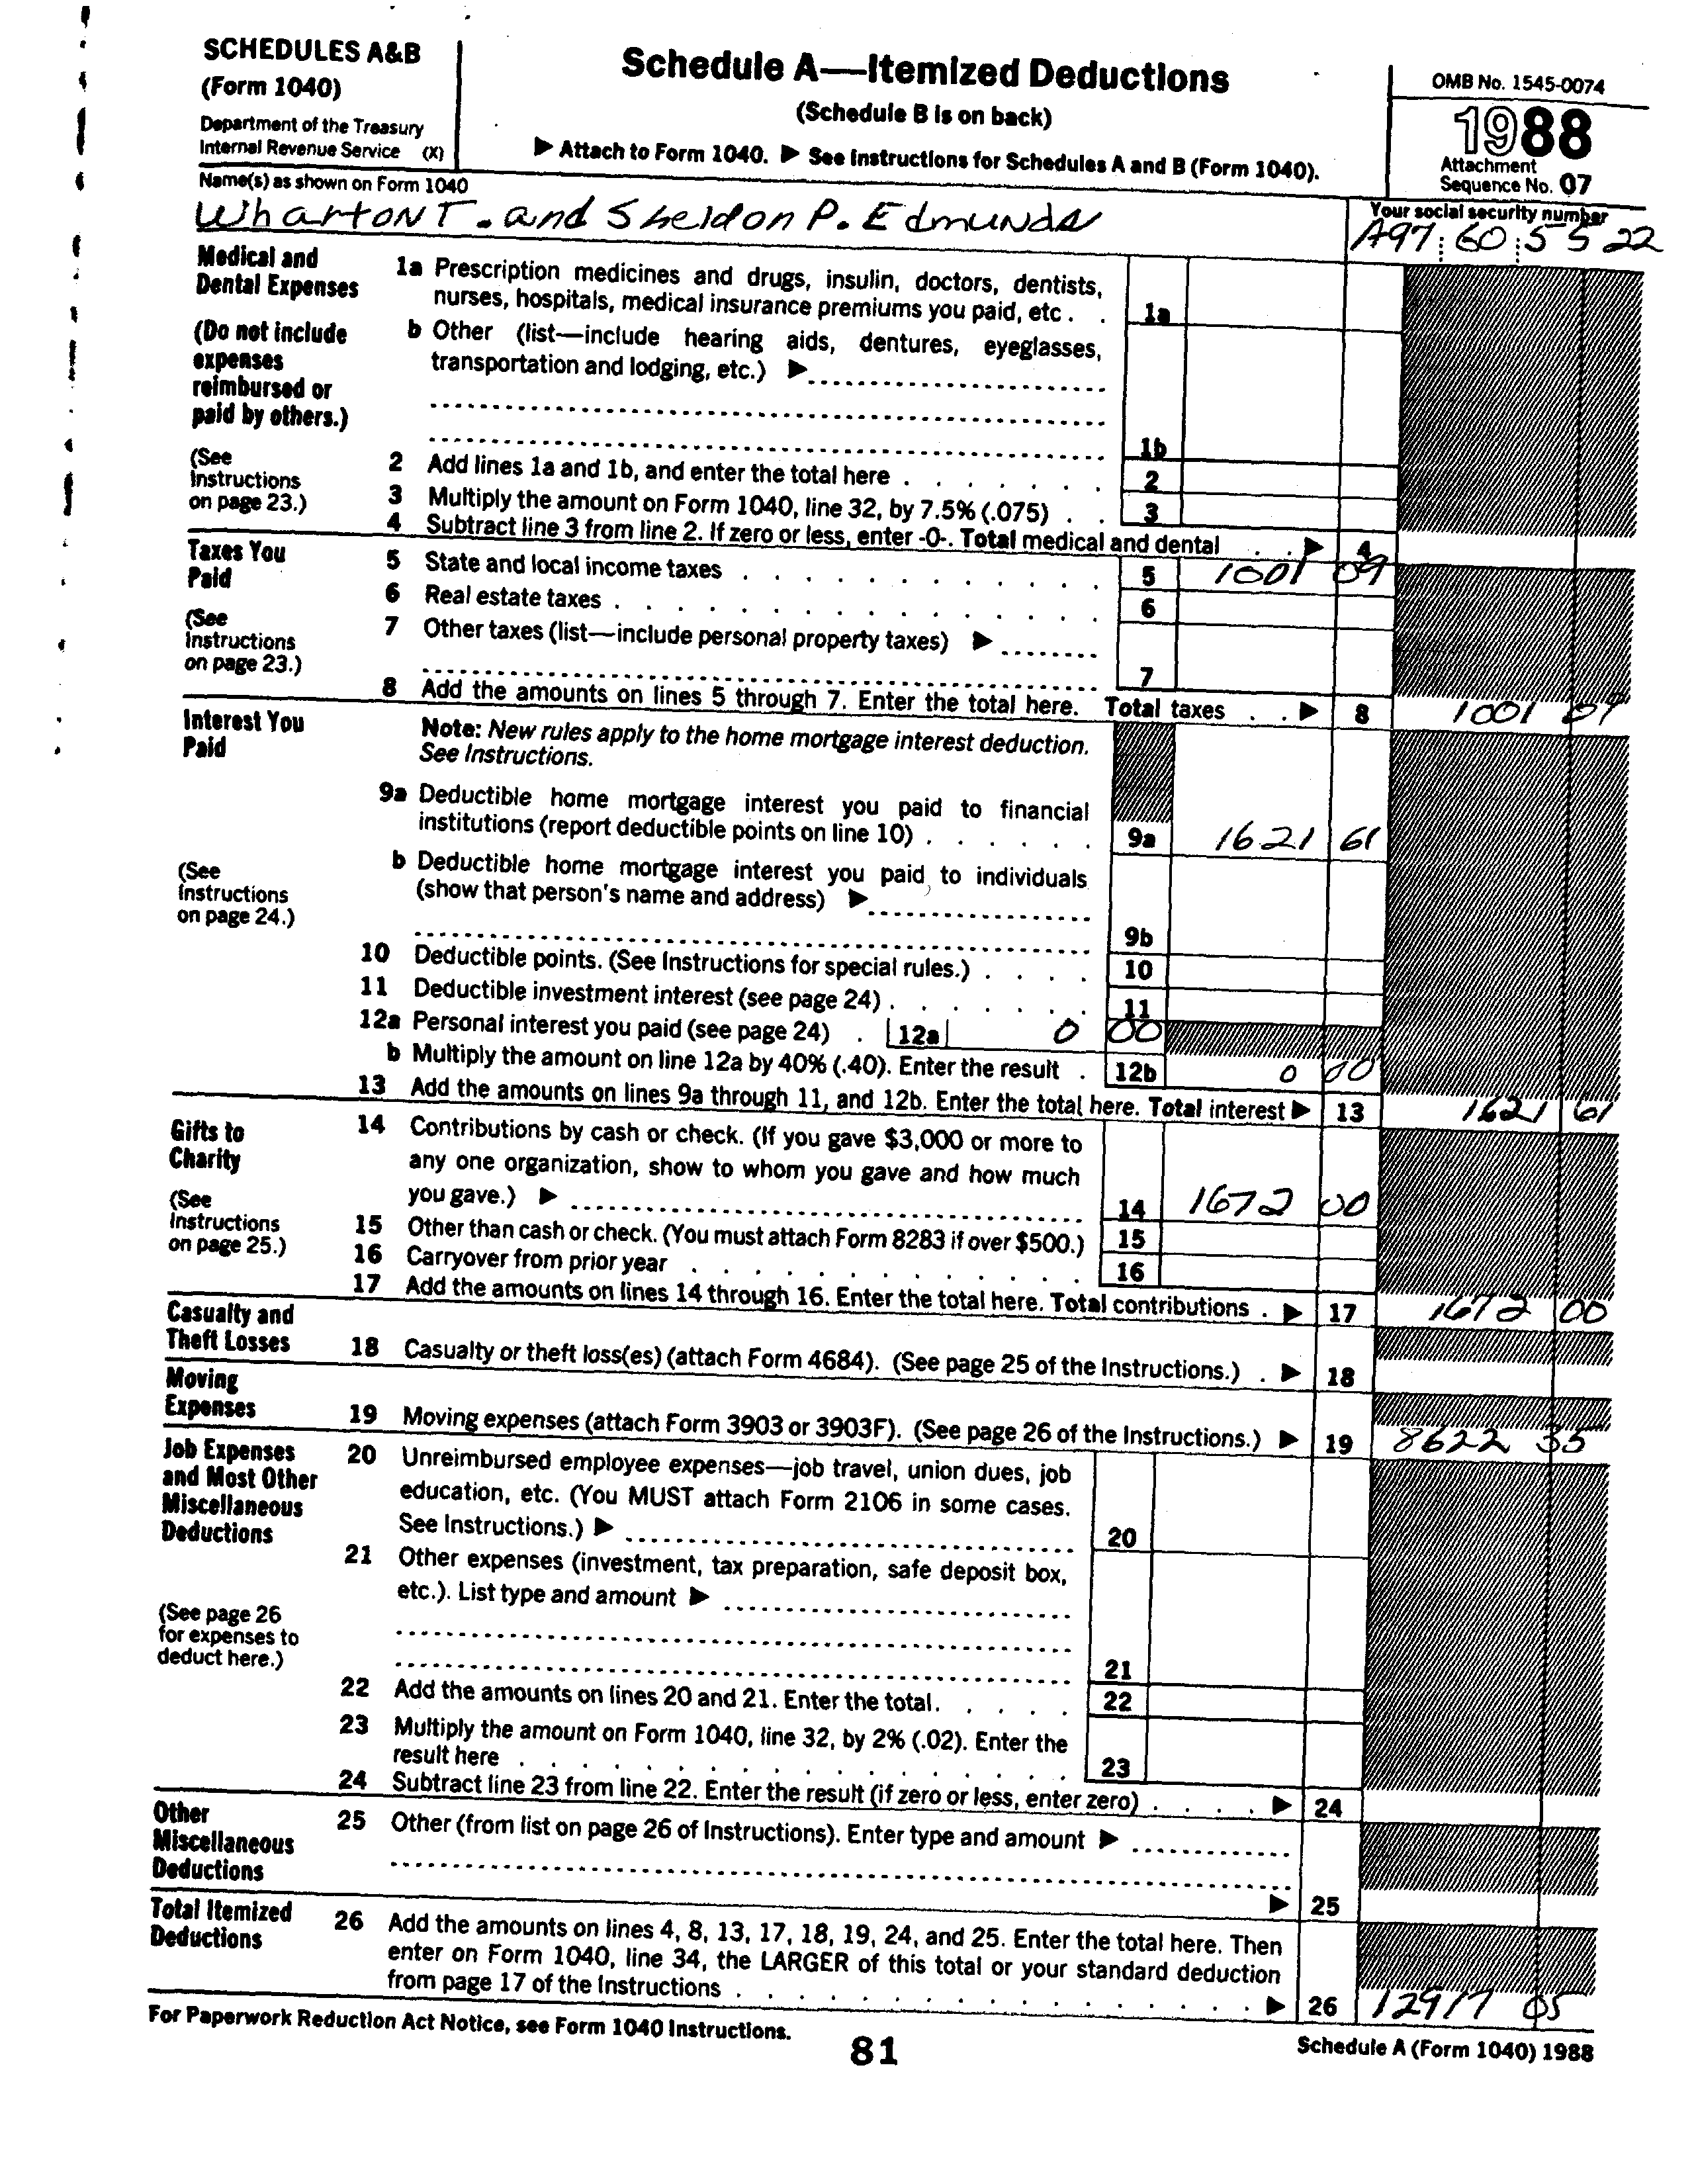 SCHEDULES A&B
(Form 1040)
Department of the Treasury
Internal Revenue Service (X)
Schedule A—Itemized Deductions
(Schedule B is on back)
▶ Attach to Form 1040. ▶ See Instructions for Schedules A and B (Form 1040).
OMB No. 1545-0074
1988
Attachment
Sequence No. 07
Name(s) as shown on Form 1040
Wharton T. and Sheldon P. Edmunds
Your social security number
A97 60 5522
Medical and
Dental Expenses
(Do not include
expenses
reimbursed or
paid by others.)
(See
Instructions
on page 23.)
1a Prescription medicines and drugs, insulin, doctors, dentists,
nurses, hospitals, medical insurance premiums you paid, etc . . 1a
b Other (list—include hearing aids, dentures, eyeglasses,
transportation and lodging, etc.) ▶
1b
2 Add lines 1a and 1b, and enter the total here . . . . . . . 2
3 Multiply the amount on Form 1040, line 32, by 7.5% (.075) . . 3
4 Subtract line 3 from line 2. If zero or less, enter -0-. Total medical and dental . . ▶ 4
Taxes You
Paid
(See
Instructions
on page 23.)
5 State and local income taxes . . . . . . . . . . . . . 5 1001 09
6 Real estate taxes . . . . . . . . . . . . . . . . . 6
7 Other taxes (list—include personal property taxes) ▶
7
8 Add the amounts on lines 5 through 7. Enter the total here. Total taxes . . ▶ 8 1001 09
Interest You
Paid
(See
Instructions
on page 24.)
Note: New rules apply to the home mortgage interest deduction.
See Instructions.
9a Deductible home mortgage interest you paid to financial
institutions (report deductible points on line 10) . . . . . . 9a 1621 61
b Deductible home mortgage interest you paid to individuals
(show that person's name and address) ▶
9b
10 Deductible points. (See Instructions for special rules.) . . . . 10
11 Deductible investment interest (see page 24) . . . . . . . 11
12a Personal interest you paid (see page 24) . 12a 0 00
b Multiply the amount on line 12a by 40% (.40). Enter the result . 12b 0 00
13 Add the amounts on lines 9a through 11, and 12b. Enter the total here. Total interest ▶ 13 1621 61
Gifts to
Charity
(See
Instructions
on page 25.)
14 Contributions by cash or check. (If you gave $3,000 or more to
any one organization, show to whom you gave and how much
you gave.) ▶ 14 1672 00
15 Other than cash or check. (You must attach Form 8283 if over $500.) 15
16 Carryover from prior year . . . . . . . . . . . . . 16
17 Add the amounts on lines 14 through 16. Enter the total here. Total contributions . ▶ 17 1672 00
Casualty and
Theft Losses
18 Casualty or theft loss(es) (attach Form 4684). (See page 25 of the Instructions.) . ▶ 18
Moving
Expenses
19 Moving expenses (attach Form 3903 or 3903F). (See page 26 of the Instructions.) ▶ 19 8622 35
Job Expenses
and Most Other
Miscellaneous
Deductions
(See page 26
for expenses to
deduct here.)
20 Unreimbursed employee expenses—job travel, union dues, job
education, etc. (You MUST attach Form 2106 in some cases.
See Instructions.) ▶ 20
21 Other expenses (investment, tax preparation, safe deposit box,
etc.). List type and amount ▶
21
22 Add the amounts on lines 20 and 21. Enter the total. . . . . 22
23 Multiply the amount on Form 1040, line 32, by 2% (.02). Enter the
result here . . . . . . . . . . . . . . . . . 23
24 Subtract line 23 from line 22. Enter the result (if zero or less, enter zero) . . . . ▶ 24
Other
Miscellaneous
Deductions
25 Other (from list on page 26 of Instructions). Enter type and amount ▶
▶ 25
Total Itemized
Deductions
26 Add the amounts on lines 4, 8, 13, 17, 18, 19, 24, and 25. Enter the total here. Then
enter on Form 1040, line 34, the LARGER of this total or your standard deduction
from page 17 of the Instructions . . . . . . . . . . . . . . . . ▶ 26 12917 05
For Paperwork Reduction Act Notice, see Form 1040 Instructions.
81
Schedule A (Form 1040) 1988